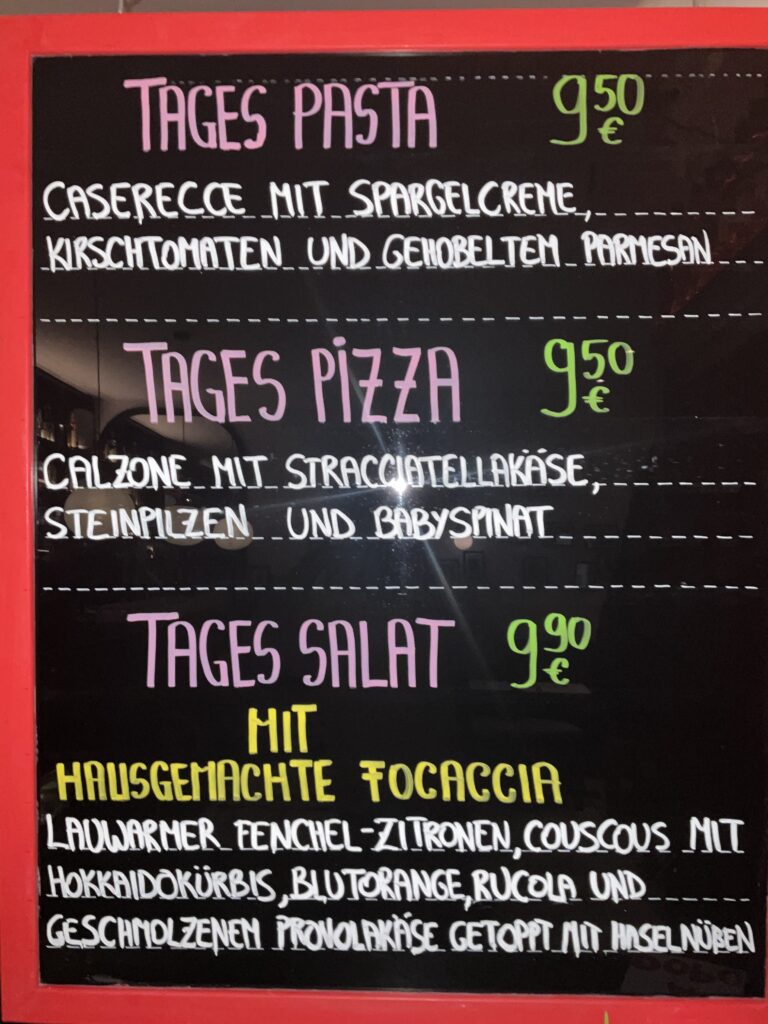 TAGES PASTA 9,50 €
CASERECCE MIT SPARGELCREME,
KIRSCHTOMATEN UND GEHOBELTEM PARMESAN
TAGES PIZZA 9,50 €
CALZONE MIT STRACCIATELLAKÄSE,
STEINPILZEN UND BABYSPINAT
TAGES SALAT 9,90 €
MIT
HAUSGEMACHTE FOCACCIA
LAUWARMER FENCHEL-ZITRONEN, COUSCOUS MIT
HOKKAIDOKÜRBIS, BLUTORANGE, RUCOLA UND
GESCHMOLZENEM PROVOLAKÄSE GETOPPT MIT HASELNÜßEN